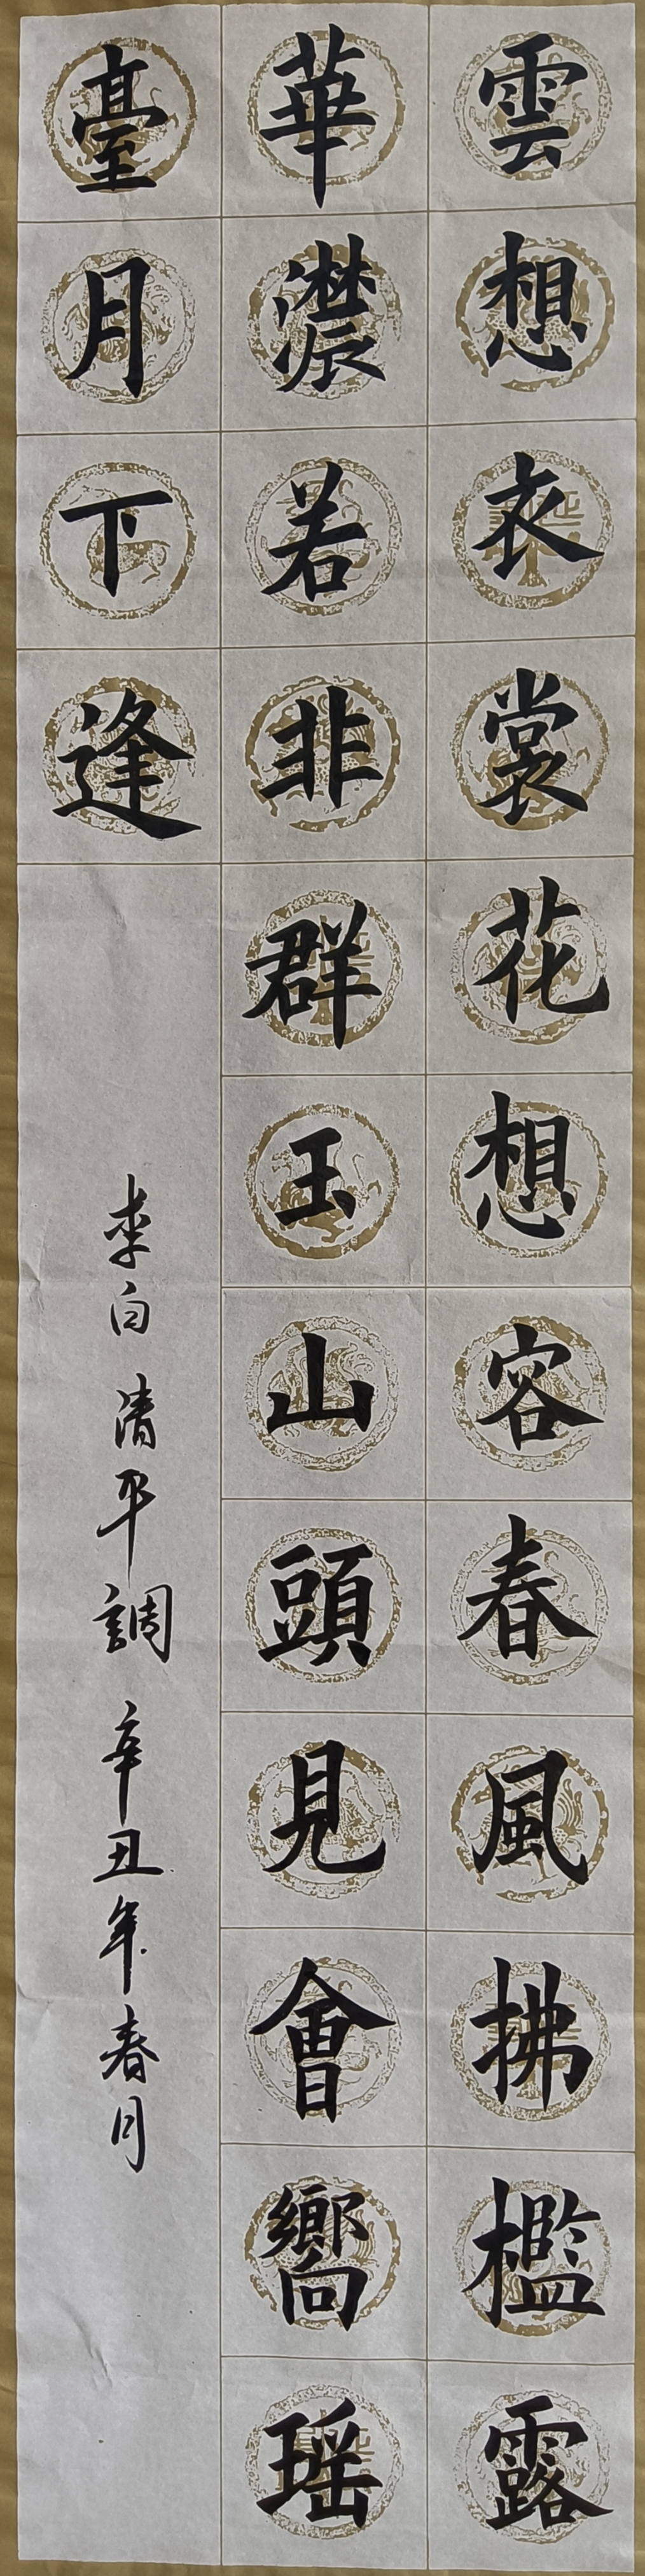 雲想衣裳花想容春風拂檻露
華濃若非群玉山頭見會嚮瑶
臺月下逢
李白清平調辛丑年春月